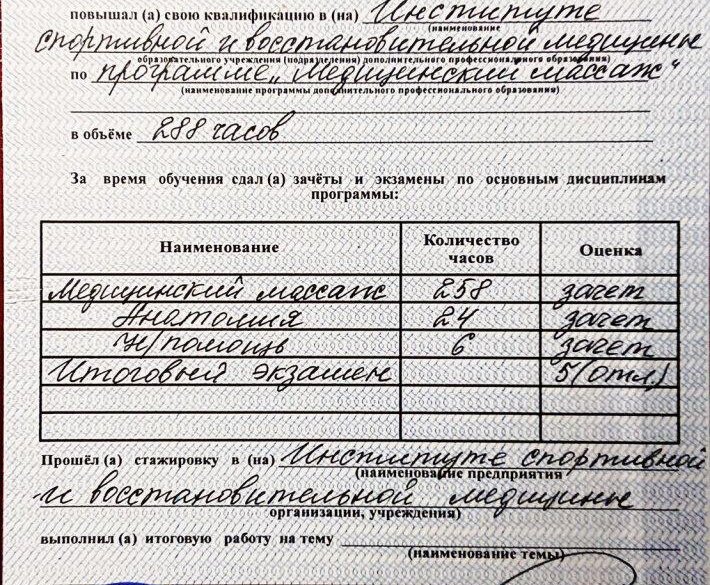 повышал (а) свою квалификацию в (на) Институте
(наименование
спортивной и восстановительной медицины
образовательного учреждения (подразделения) дополнительного профессионального образования)
по программе „Медицинский массаж“
(наименование программы дополнительного профессионального образования)
в объёме 288 часов
За время обучения сдал (а) зачёты и экзамены по основным дисциплинам
программы:
Наименование Количество часов Оценка
Медицинский массаж 258 зачет
Анатомия 24 зачет
Н/помощь 6 зачет
Итоговый экзамен 5 (отл.)
Прошёл (а) стажировку в (на) Институте спортивной
(наименование предприятия
и восстановительной медицины
организации, учреждения)
выполнил (а) итоговую работу на тему
(наименование темы)